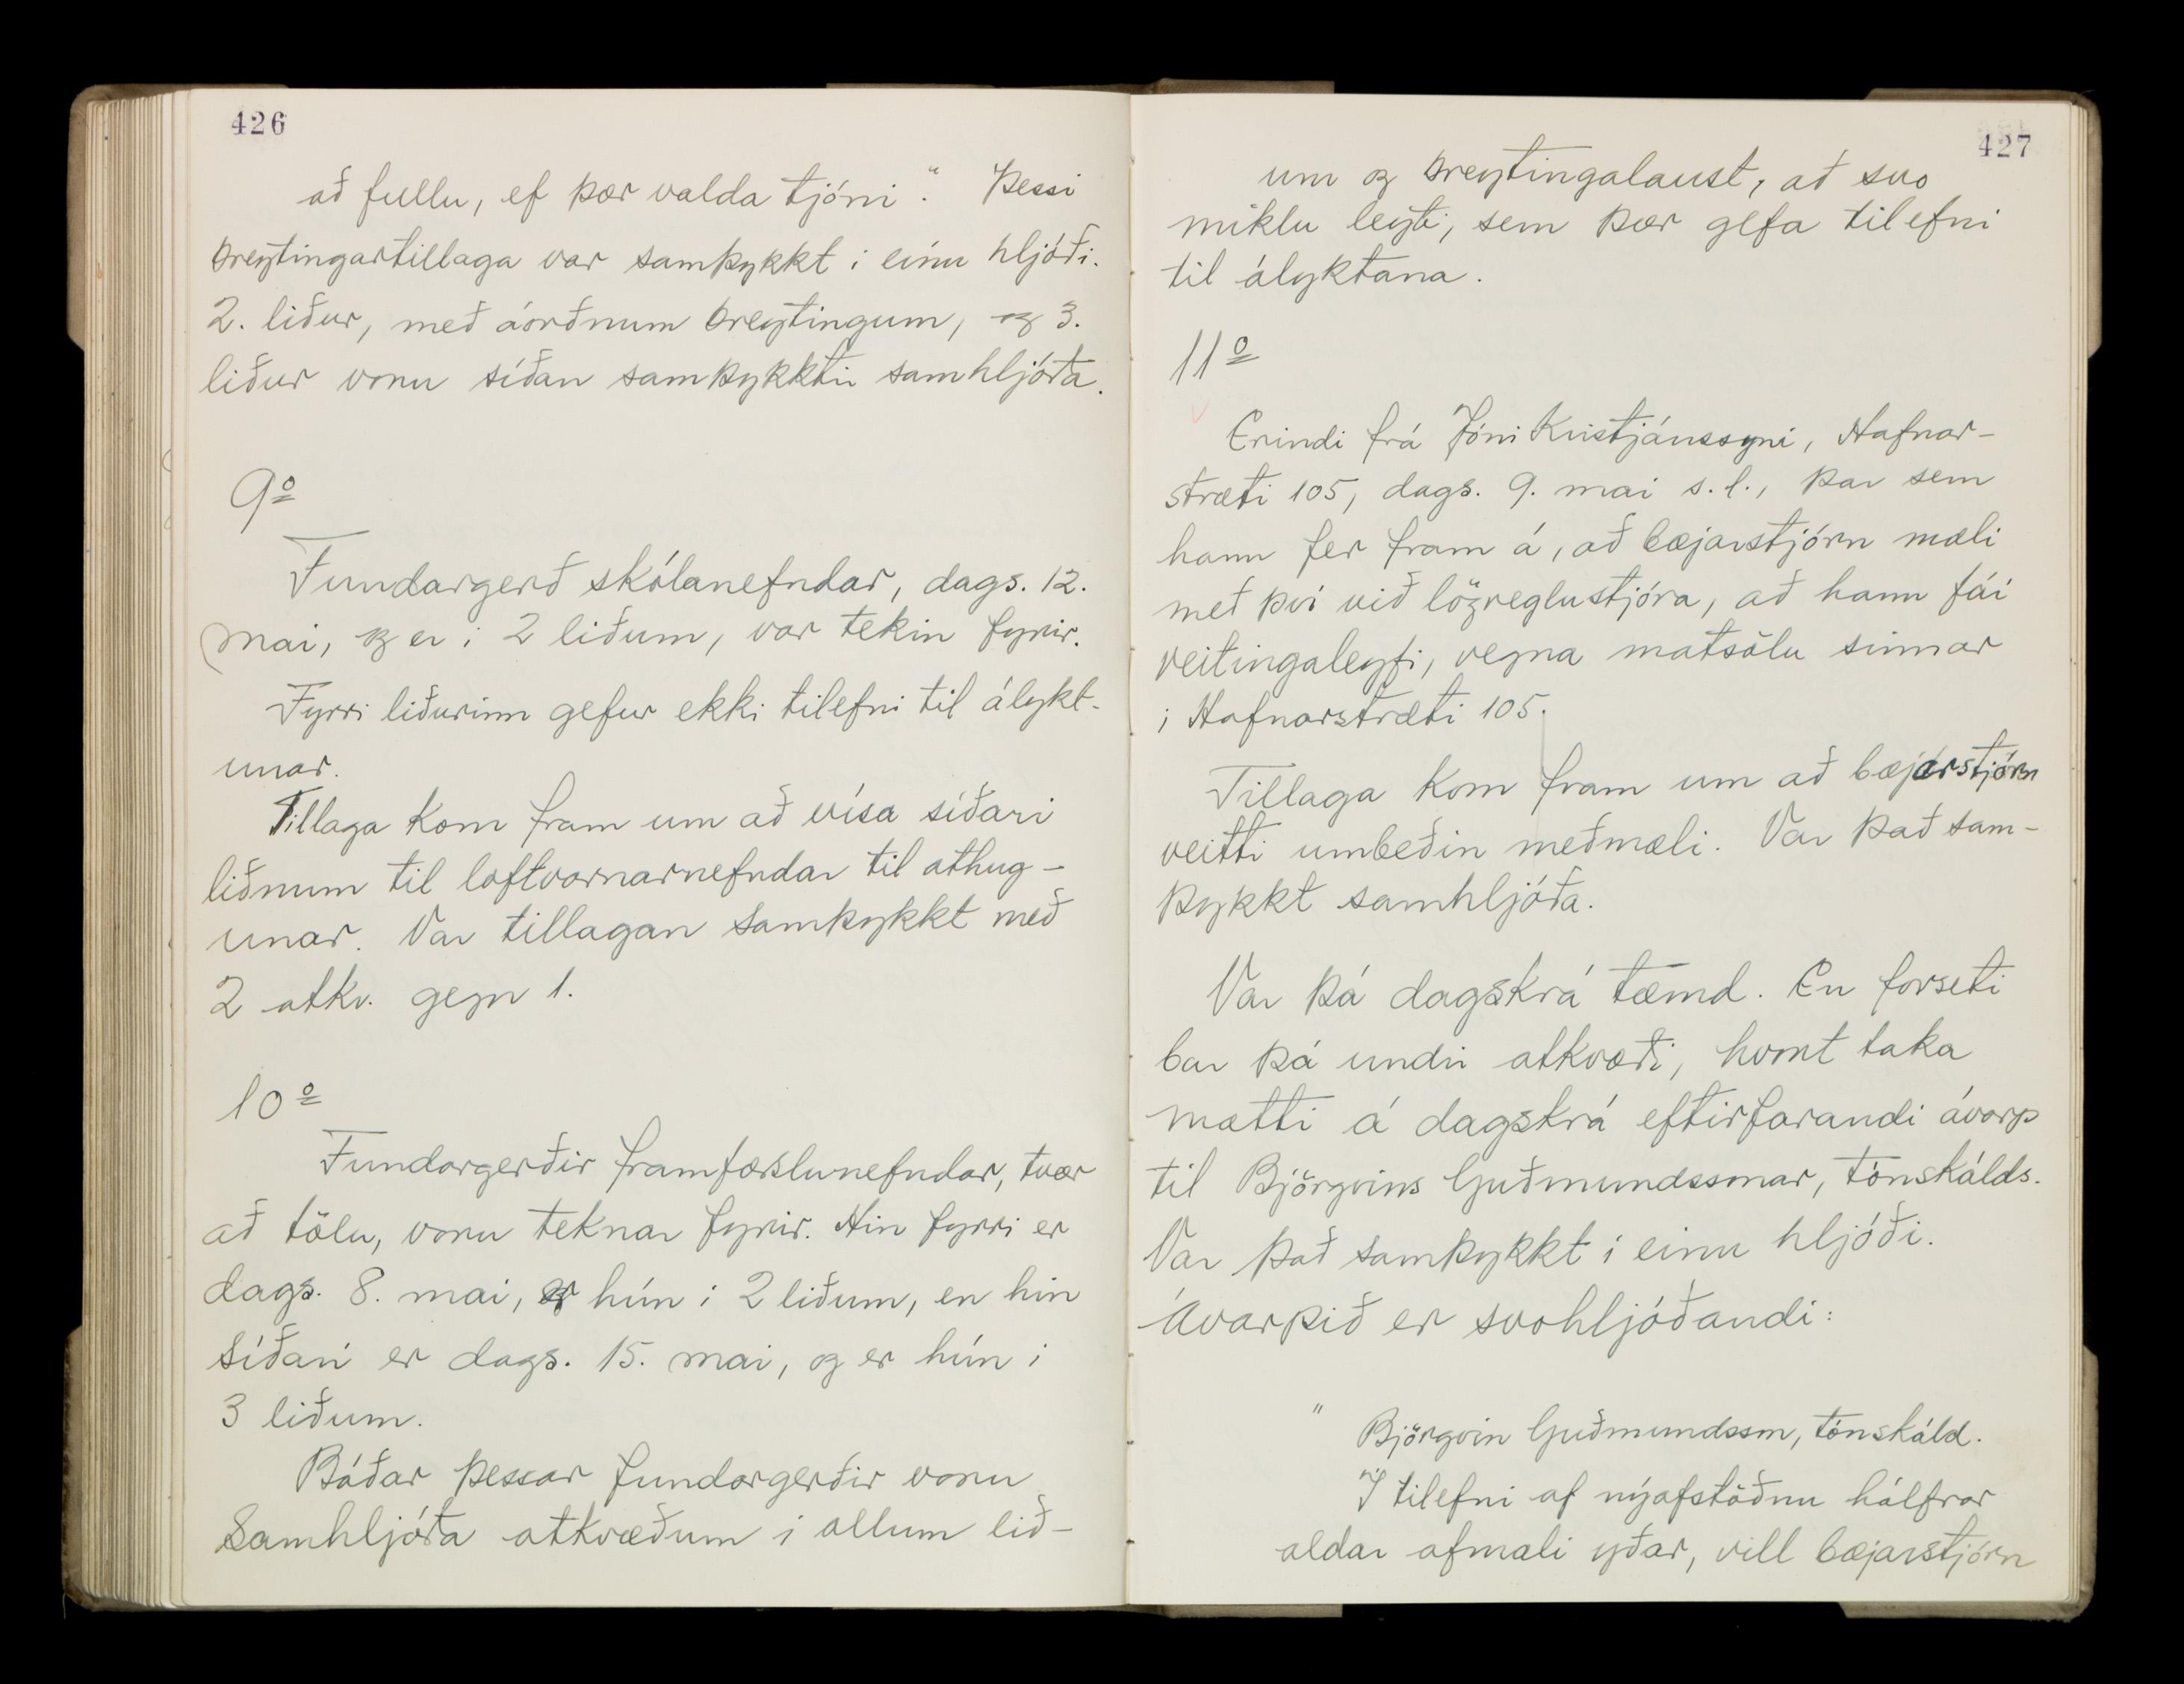 426
að fullu, ef þær valda tjóni". Þessi
breytingartillaga var samþykkt i einu hljóði.
2. liður, með áorðnum breytingum, og 3.
liður voru síðan samþykktir samhljóða.
9º
Fundargerð skólanefndar, dags. 12.
mai, og er i 2 liðum, var tekin fyrir.
Fyrri liðurinn gefur ekki tilefni til álykt-
unar.
Tillaga kom fram um að vísa síðari
liðnum til loftvarnarnefndar til athug-
unar. Var tillagan samþykkt með
2 atkv. gegn 1.
10º
Fundargerðir framfærslunefndar, tvær
að tölu, voru teknar fyrir. Hin fyrri er
dags. 8. mai, er hún i 2 liðum, en hin
síðari er dags. 15. mai, og er hún i
3 liðum.
Báðar þessar fundargerðir voru
samhljóða atkvæðum i öllum lið-
427
um og breytingalaust, að svo
miklu leyti, sem þær gefa tilefni
til ályktana.
11º
Erindi frá Jóni Kristjánssyni, Hafnar-
stræti 105, dags. 9. mai s.l., þar sem
hann fer fram á, að bæjarstjórn mæli
með því við lögreglustjóra, að hann fái
veitingaleyfi, vegna matsölu sinnar
i Hafnarstræti 105.
Tillaga kom fram um að bæjarstjórn
veitti umbeðin meðmæli. Var það sam-
þykkt samhljóða.
Var þá dagskrá tæmd. En forseti
bar þá undir atkvæði, hvort taka
mætti á dagskrá eftirfarandi ávarp
til Björgvins Guðmundssonar, tónskálds.
Var það samþykkt i einu hljóði.
Ávarpið er svohljóðandi:
" Björgvin Guðmundsson, tónskáld.
Í tilefni af nýafstöðnu hálfrar
aldar afmæli yðar, vill bæjarstjórn